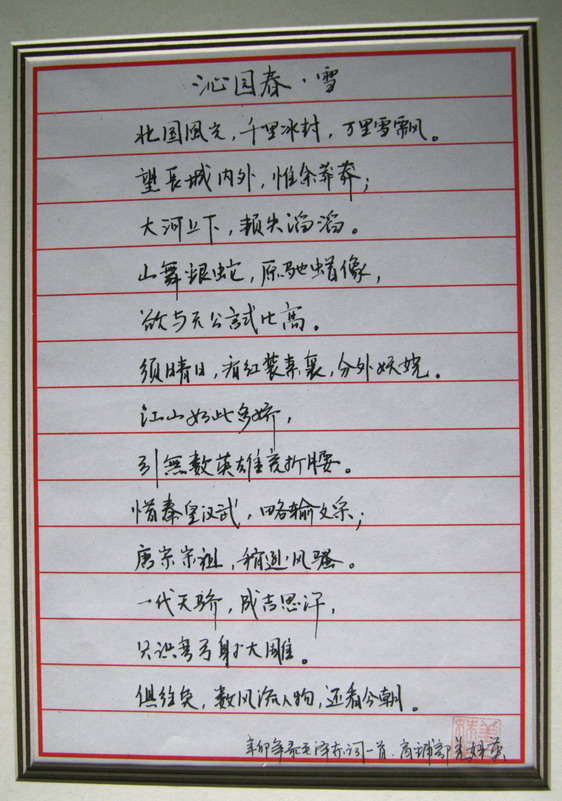 沁园春·雪
北国風光，千里冰封，万里雪飘。
望長城内外，惟余莽莽；
大河上下，頓失滔滔。
山舞銀蛇，原馳蜡像，
欲与天公試比高。
须晴日，看红装素裹，分外妖娆。
江山如此多娇，
引無数英雄竞折腰。
惜秦皇汉武，略输文采；
唐宗宋祖，稍逊风骚。
一代天骄，成吉思汗，
只识弯弓射大雕。
俱往矣，数风流人物，还看今朝。
辛卯年录毛泽东词一首